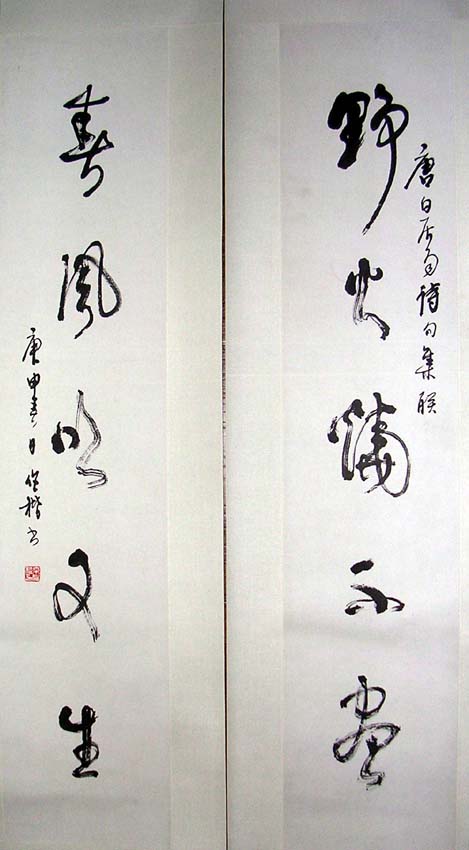 唐白居易詩句集联
野火燒不盡
春風吹又生
庚申春日楷书